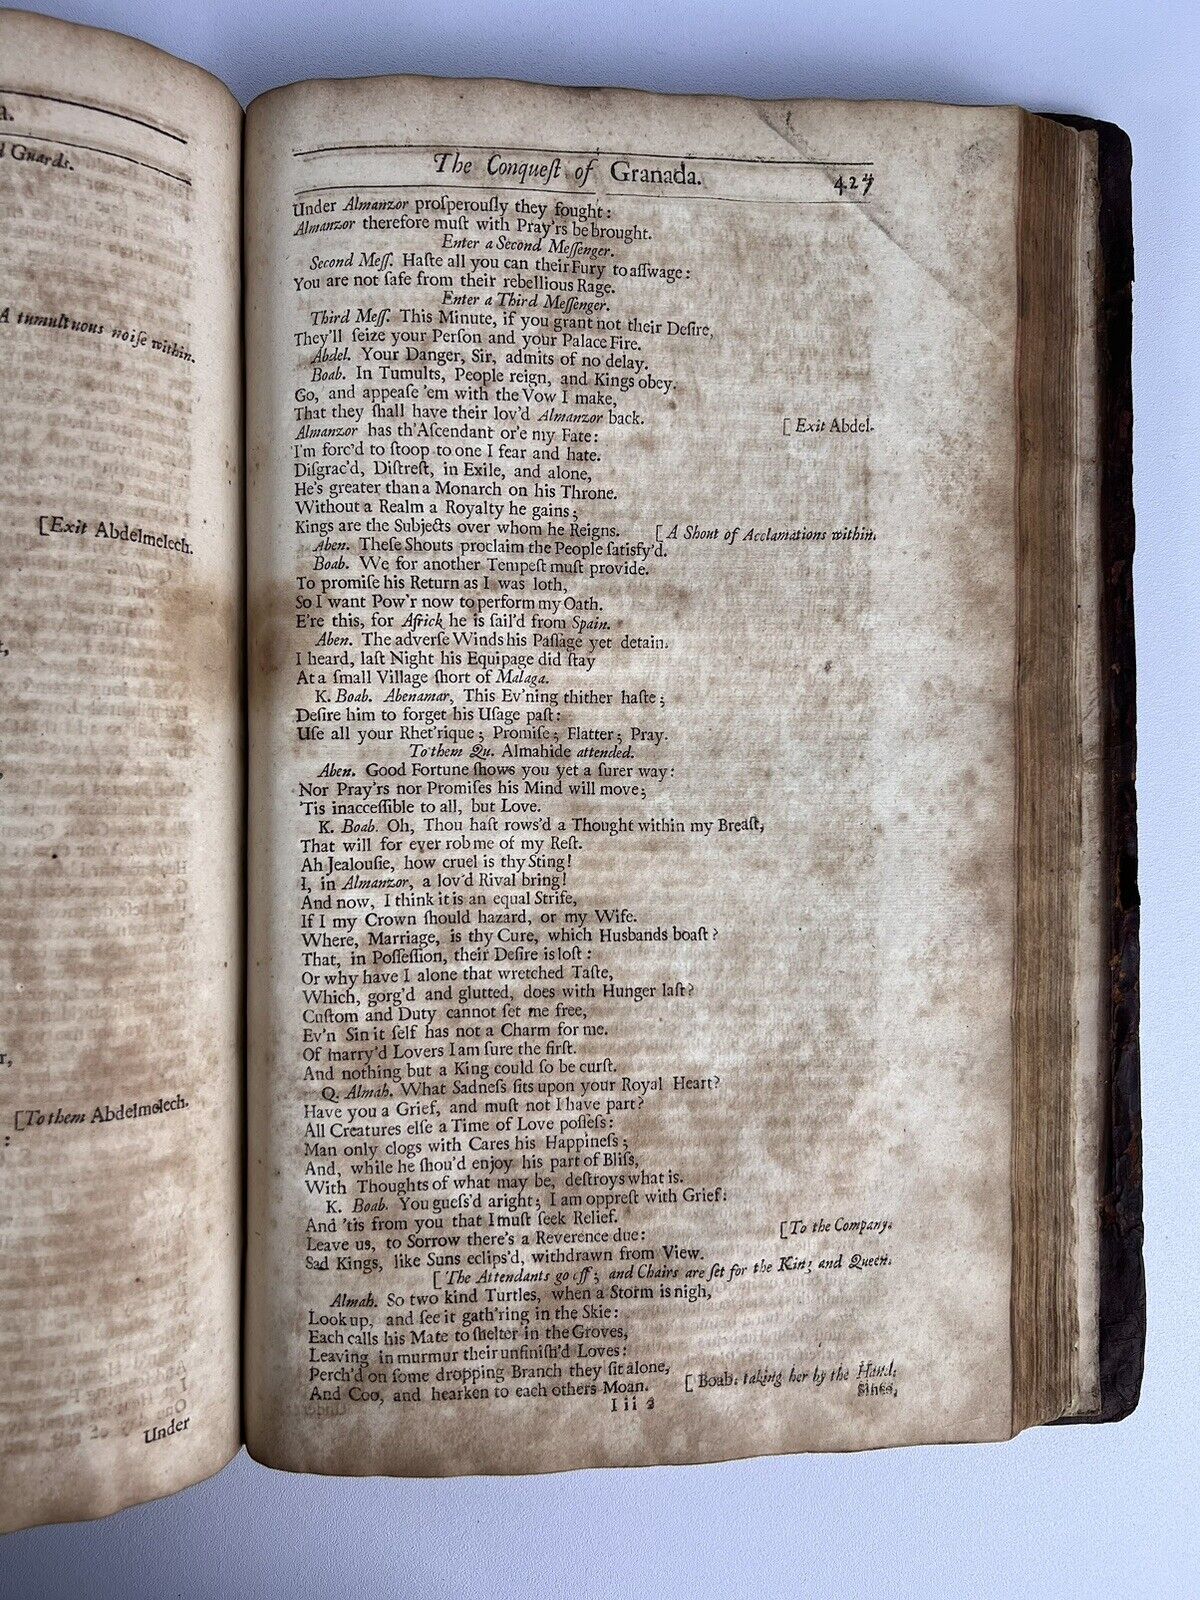 a.
d Guards.
A tumultuous noiſe within.
[Exit Abdelmelech.
[To them Abdelmelech.
:
Under
The Conqueſt of Granada.
427
Under Almanzor proſperouſly they fought:
Almanzor therefore muſt with Pray'rs be brought.
Enter a Second Meſſenger.
Second Meſſ. Haſte all you can their Fury to aſſwage:
You are not ſafe from their rebellious Rage.
Enter a Third Meſſenger.
Third Meſſ. This Minute, if you grant not their Deſire,
They'll ſeize your Perſon and your Palace Fire.
Abdel. Your Danger, Sir, admits of no delay.
Boab. In Tumults, People reign, and Kings obey.
Go, and appeaſe 'em with the Vow I make,
That they ſhall have their lov'd Almanzor back. [Exit Abdel.
Almanzor has th'Aſcendant or'e my Fate:
I'm forc'd to ſtoop to one I fear and hate.
Diſgrac'd, Diſtreſt, in Exile, and alone,
He's greater than a Monarch on his Throne.
Without a Realm a Royalty he gains;
Kings are the Subjects over whom he Reigns. [A Shout of Acclamations within.
Aben. Theſe Shouts proclaim the People ſatisfy'd.
Boab. We for another Tempeſt muſt provide.
To promiſe his Return as I was loth,
So I want Pow'r now to perform my Oath.
E're this, for Africk he is ſail'd from Spain.
Aben. The adverſe Winds his Paſſage yet detain.
I heard, laſt Night his Equipage did ſtay
At a ſmall Village ſhort of Malaga.
K. Boab. Abenamar, This Ev'ning thither haſte;
Deſire him to forget his Uſage paſt:
Uſe all your Rhet'rique; Promiſe; Flatter; Pray.
To them Qu. Almahide attended.
Aben. Good Fortune ſhows you yet a ſurer way:
Nor Pray'rs nor Promiſes his Mind will move;
'Tis inacceſſible to all, but Love.
K. Boab. Oh, Thou haſt rows'd a Thought within my Breaſt,
That will for ever rob me of my Reſt.
Ah Jealouſie, how cruel is thy Sting!
I, in Almanzor, a lov'd Rival bring!
And now, I think it is an equal Strife,
If I my Crown ſhould hazard, or my Wife.
Where, Marriage, is thy Cure, which Husbands boaſt?
That, in Poſſeſſion, their Deſire is loſt:
Or why have I alone that wretched Taſte,
Which, gorg'd and glutted, does with Hunger laſt?
Cuſtom and Duty cannot ſet me free,
Ev'n Sin it ſelf has not a Charm for me.
Of marry'd Lovers I am ſure the firſt.
And nothing but a King could ſo be curſt.
Q. Almah. What Sadneſs ſits upon your Royal Heart?
Have you a Grief, and muſt not I have part?
All Creatures elſe a Time of Love poſſeſs:
Man only clogs with Cares his Happineſs;
And, while he ſhou'd enjoy his part of Bliſs,
With Thoughts of what may be, deſtroys what is.
K. Boab. You gueſs'd aright; I am oppreſt with Grief:
And 'tis from you that I muſt ſeek Relief. [To the Company.
Leave us, to Sorrow there's a Reverence due:
Sad Kings, like Suns eclips'd, withdrawn from View.
[The Attendants go off; and Chairs are ſet for the King and Queen.
Almah. So two kind Turtles, when a Storm is nigh,
Look up, and ſee it gath'ring in the Skie:
Each calls his Mate to ſhelter in the Groves,
Leaving in murmur their unfiniſh'd Loves:
Perch'd on ſome dropping Branch they ſit alone,
And Coo, and hearken to each others Moan. [Boab. taking her by the Hand.
I i i 2 Sines,